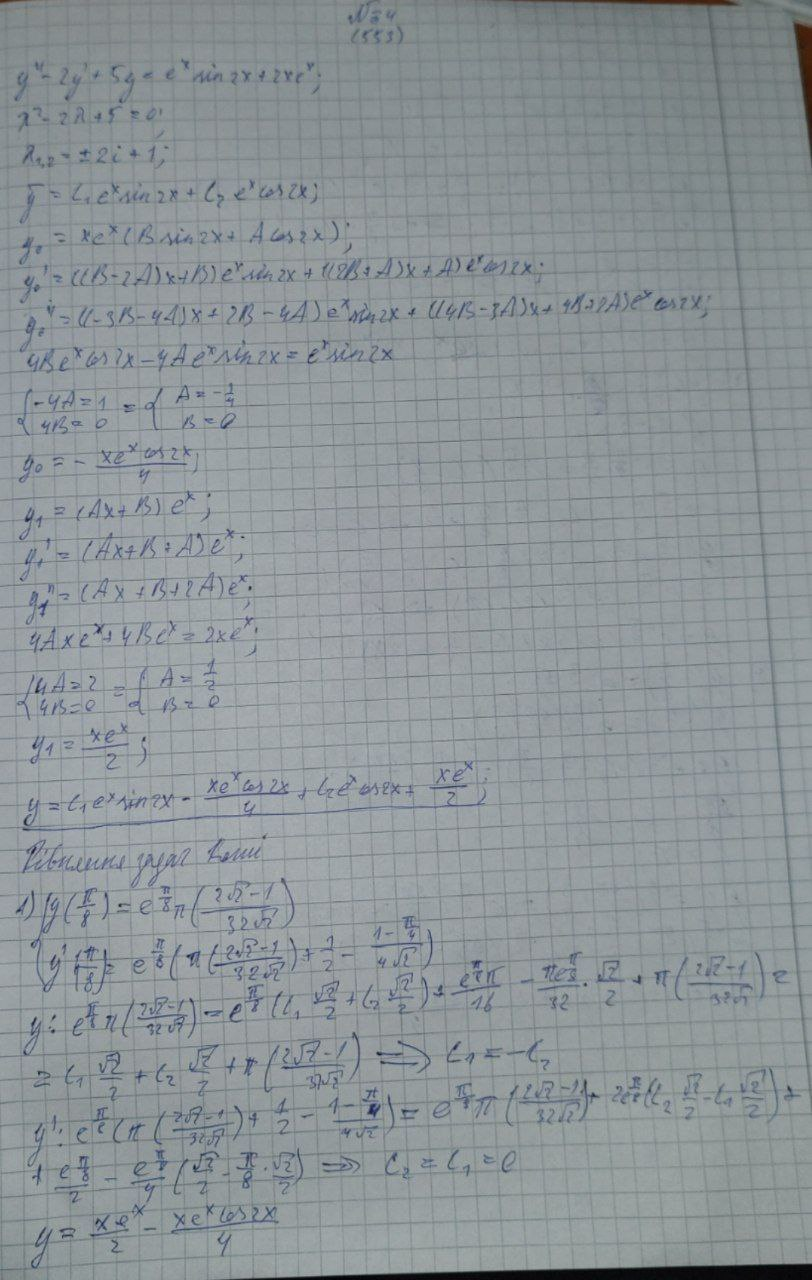 №4
(553)
y'' - 2y' + 5y = e^x sin2x + 2xe^x;
λ² - 2λ + 5 = 0;
λ₁,₂ = ±2i + 1;
ȳ = C₁e^x sin2x + C₂e^x cos2x;
y₀ = xe^x(B sin2x + A cos2x);
y₀' = ((B-2A)x+B)e^x sin2x + ((2B+A)x+A)e^x cos2x;
y₀'' = ((-3B-4A)x + 2B-4A)e^x sin2x + ((4B-3A)x + 4B+2A)e^x cos2x;
4Be^x cos2x - 4Ae^x sin2x = e^x sin2x
{-4A=1, 4B=0 = {A=-1/4, B=0
y₀ = -xe^x cos2x/4;
y₁ = (Ax+B)e^x;
y₁' = (Ax+B+A)e^x;
y₁'' = (Ax+B+2A)e^x;
4Axe^x + 4Be^x = 2xe^x;
{4A=2, 4B=0 = {A=1/2, B=0
y₁ = xe^x/2;
y = C₁e^x sin2x - xe^x cos2x/4 + C₂e^x cos2x + xe^x/2;
задач Коші
1) {y(π/8) = e^(π/8) π((2√2-1)/(32√2))
{y'(π/8) = e^(π/8)(π((2√2-1)/(32√2)) + 1/2 - (1-π/4)/(4√2))
y: e^(π/8) π((2√2-1)/(32√2)) = e^(π/8)(C₁ √2/2 + C₂ √2/2) + e^(π/8)π/16 - πe^(π/8)/32 · √2/2 + π((2√2-1)/(32√2)) =
= C₁ √2/2 + C₂ √2/2 + π((2√2-1)/(32√2)) ⟹ C₁ = -C₂
y': e^(π/8)(π((2√2-1)/(32√2)) + 1/2 - (1-π/4)/(4√2)) = e^(π/8) π((2√2-1)/(32√2)) + 2e^(π/8)(C₂ √2/2 - C₁ √2/2) +
+ e^(π/8)/2 - e^(π/8)/4 (√2/2 - π/8 · √2/2) ⟹ C₂ = C₁ = 0
y = xe^x/2 - xe^x cos2x/4